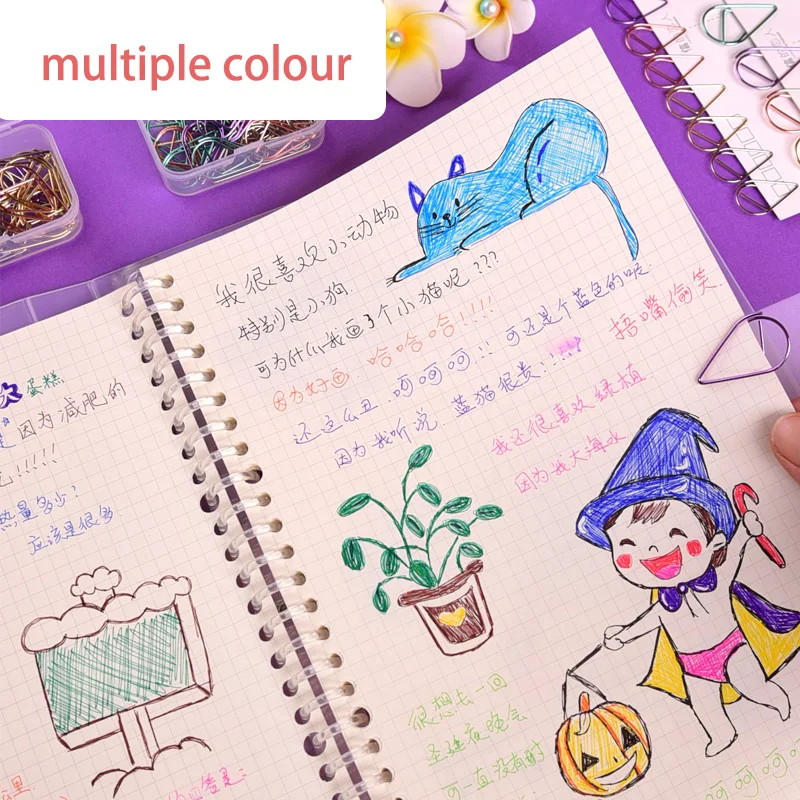 multiple colour
我很喜欢小动物
特别是小狗.
可为什么我画了个小猫呢???
因为好画. 哈哈哈!!!!
还这么丑.呵呵呵.!! 可还是个蓝色的呢.
因为我听说 蓝猫很贵!!!!
捂嘴偷笑.
我还很喜欢绿植
因为我大海水
很想去一回
圣诞夜晚会
可一直没有时
呵呵呵呵
蛋糕
因为减肥的
!!!!!
热量多少?
应该是很多
公里